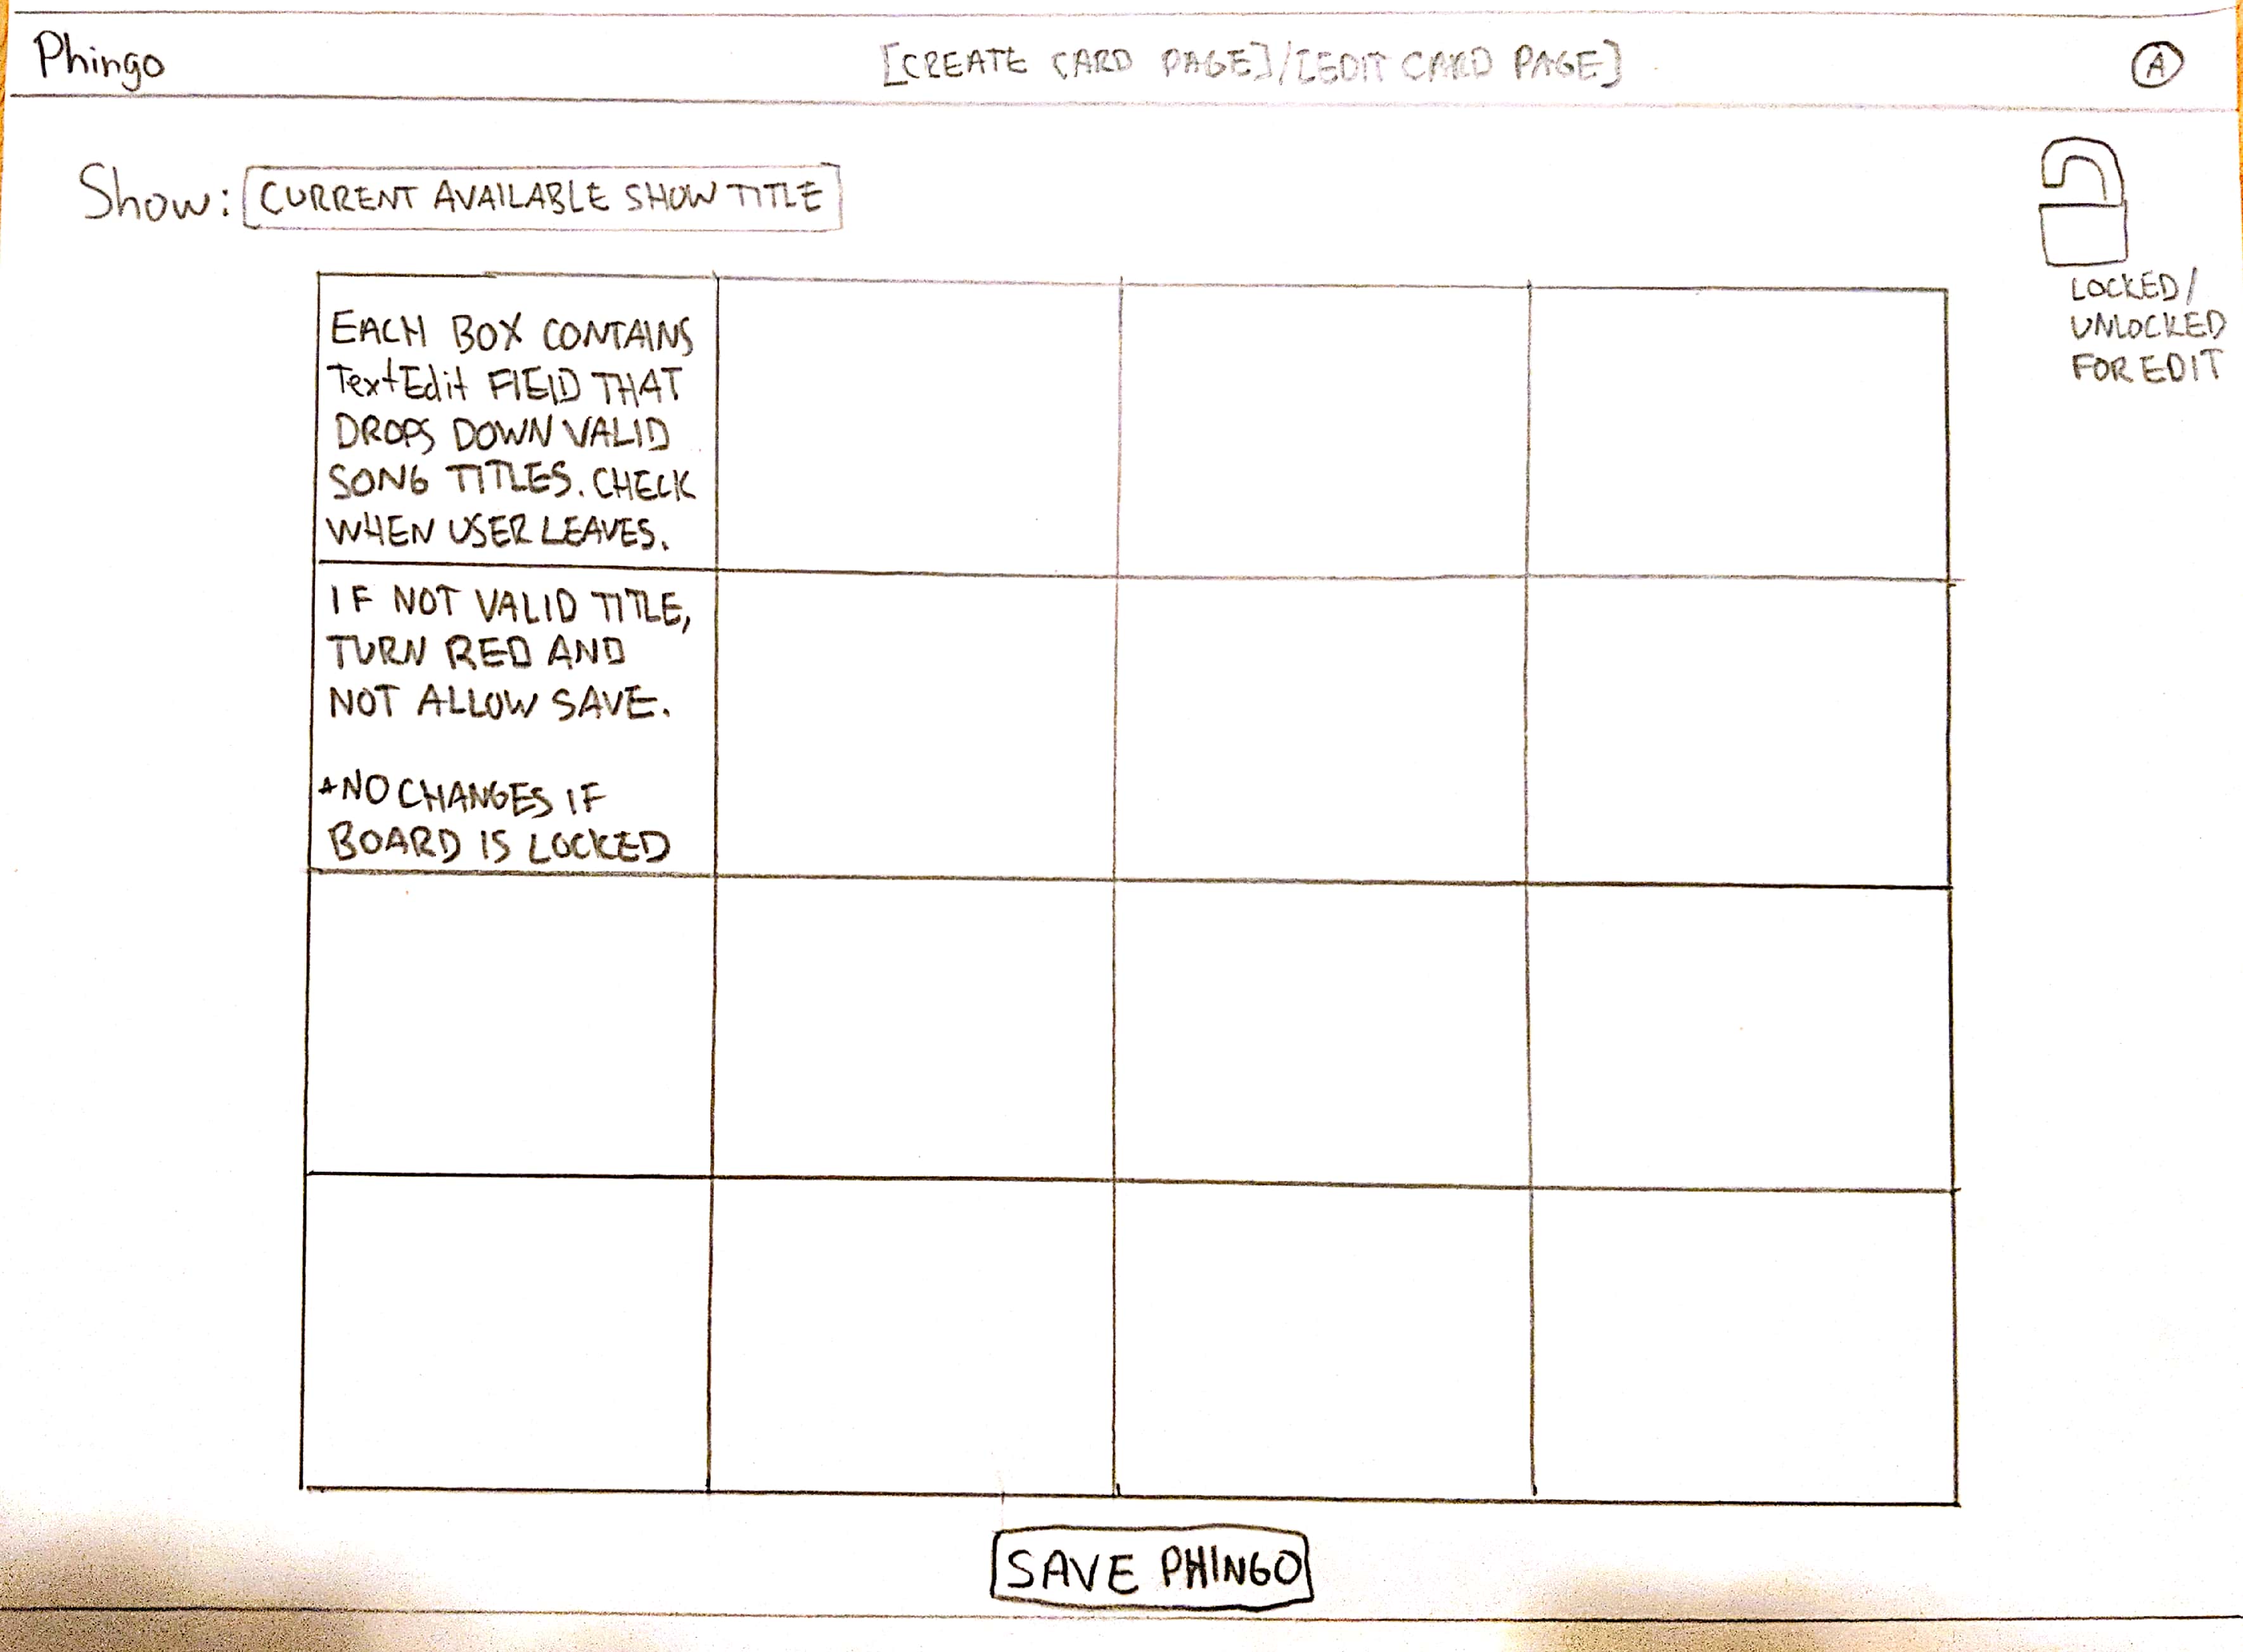 Phingo
[CREATE CARD PAGE]/[EDIT CARD PAGE]
A
Show: CURRENT AVAILABLE SHOW TITLE
LOCKED/
UNLOCKED
FOR EDIT
EACH BOX CONTAINS
TextEdit FIELD THAT
DROPS DOWN VALID
SONG TITLES. CHECK
WHEN USER LEAVES.
IF NOT VALID TITLE,
TURN RED AND
NOT ALLOW SAVE.
*NO CHANGES IF
BOARD IS LOCKED
SAVE PHINGO